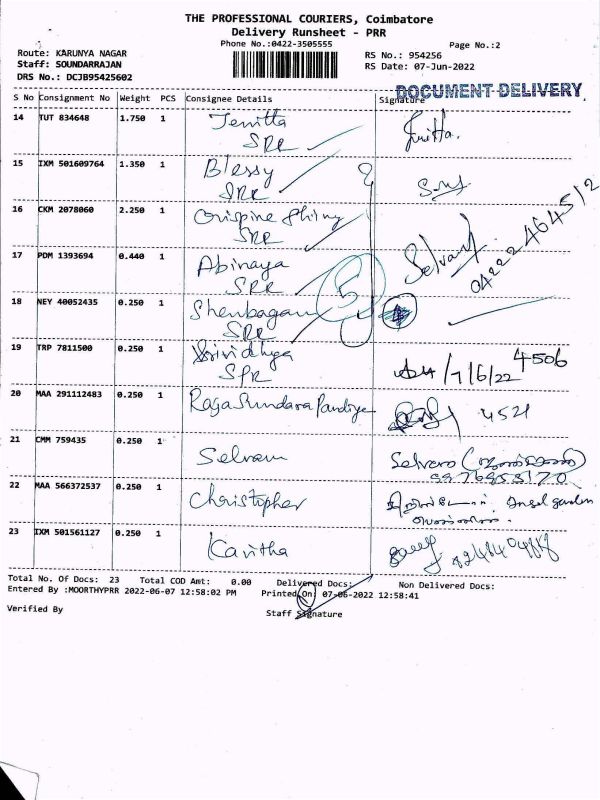 THE PROFESSIONAL COURIERS, Coimbatore
Delivery Runsheet - PRR
Phone No.:0422-3505555
Page No.:2
Route: KARUNYA NAGAR
Staff: SOUNDARRAJAN
DRS No.: DCJB95425602
RS No.: 954256
RS Date: 07-Jun-2022
DOCUMENT DELIVERY
S No Consignment No Weight PCS Consignee Details Signature
14 TUT 834648 1.750 1 Jenitta
SRR
15 IXM 501609764 1.350 1 Blessy
SRR
16 CKM 2078060 2.250 1 Crispine Shiny
SRR
17 PDM 1393694 0.440 1 Abinaya Selvam
SRR
5
18 NEY 40052435 0.250 1 Shenbagam
SRR
19 TRP 7811500 0.250 1 Srividhya 4506
SRR 7/6/22
20 MAA 291112483 0.250 1 Raga Sundara Pandiye 4521
21 CMM 759435 0.250 1 Selvam
22 MAA 566372537 0.250 1 Christopher
23 IXM 501561127 0.250 1 Kavitha
Total No. Of Docs: 23 Total COD Amt: 0.00 Delivered Docs: Non Delivered Docs:
Entered By :MOORTHYPRR 2022-06-07 12:58:02 PM Printed On: 07-06-2022 12:58:41
Verified By Staff Signature